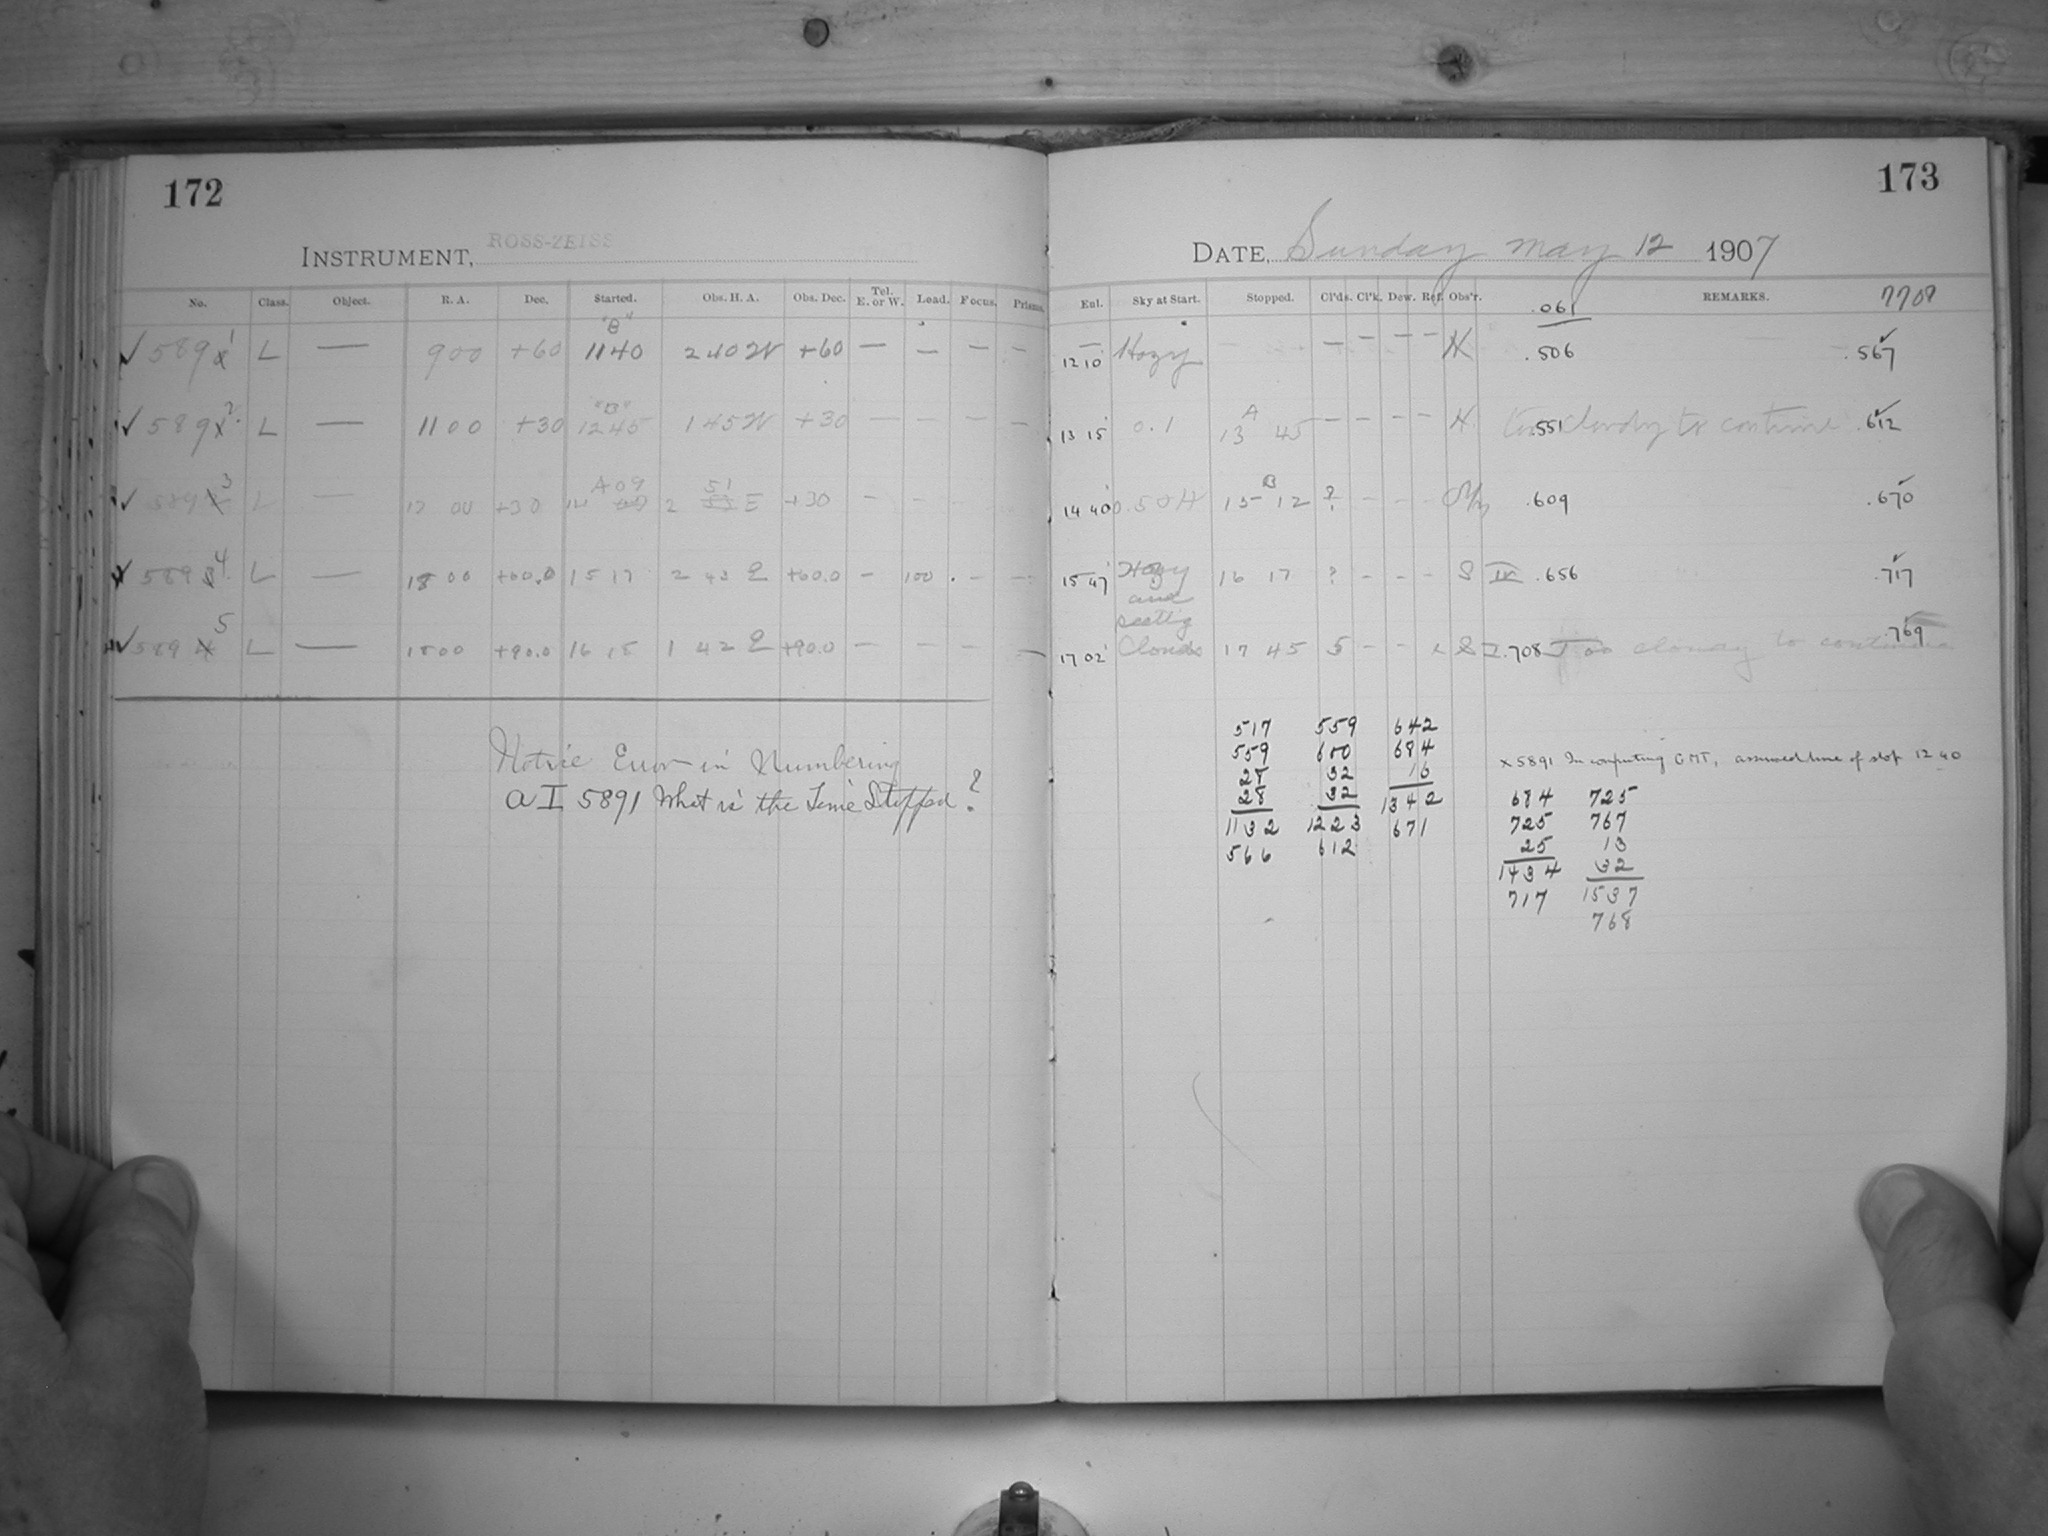 172
INSTRUMENT, ROSS-ZEISS
No. Class. Object. R. A. Dec. Started. Obs. H. A. Obs. Dec. Tel. E. or W. Load. Focus. Prisms.
"B"
✓ 5891 L — 9 00 +60 11 40 2 40 W +60 — — — —
"B"
✓ 5892 L — 11 00 +30 12 45 1 45 W +30 — — — —
A 09 51
✓ 5893 L — 17 00 +30 14 2 E +30 — —
✓ 5894 L — 18 00 +60.0 15 17 2 43 E +60.0 — 100 . — —
✓ 5895 L — 18 00 +90.0 16 15 1 42 E +90.0 — — — —
Notice Error in Numbering
a I 5891 What is the Time Stopped?
173
DATE, Sunday May 12 1907
Eul. Sky at Start. Stopped. Cl'ds. Cl'k. Dew. Ref. Obs'r. REMARKS. 7708
.061
12 10 Hazy — — — — — H .506 .567 ✓
13 15 0.1 A 13 45 — — — — H .551 too cloudy to continue .612 ✓
14 40 B 15 12 ? — — — .609 .670 ✓
15 47 Hazy 16 17 ? - - - S IV .656 .717 ✓
and
17 02 Clouds 17 45 5 - - S I .708 Too cloudy to continue .769
517 559 642
559 600 684
28 32 16
28 32 1342
1132 1223 671
566 612
x 5891 In computing GMT, assumed time of stop 12 40
684 725
725 767
25 13
1434 32
717 1537
768